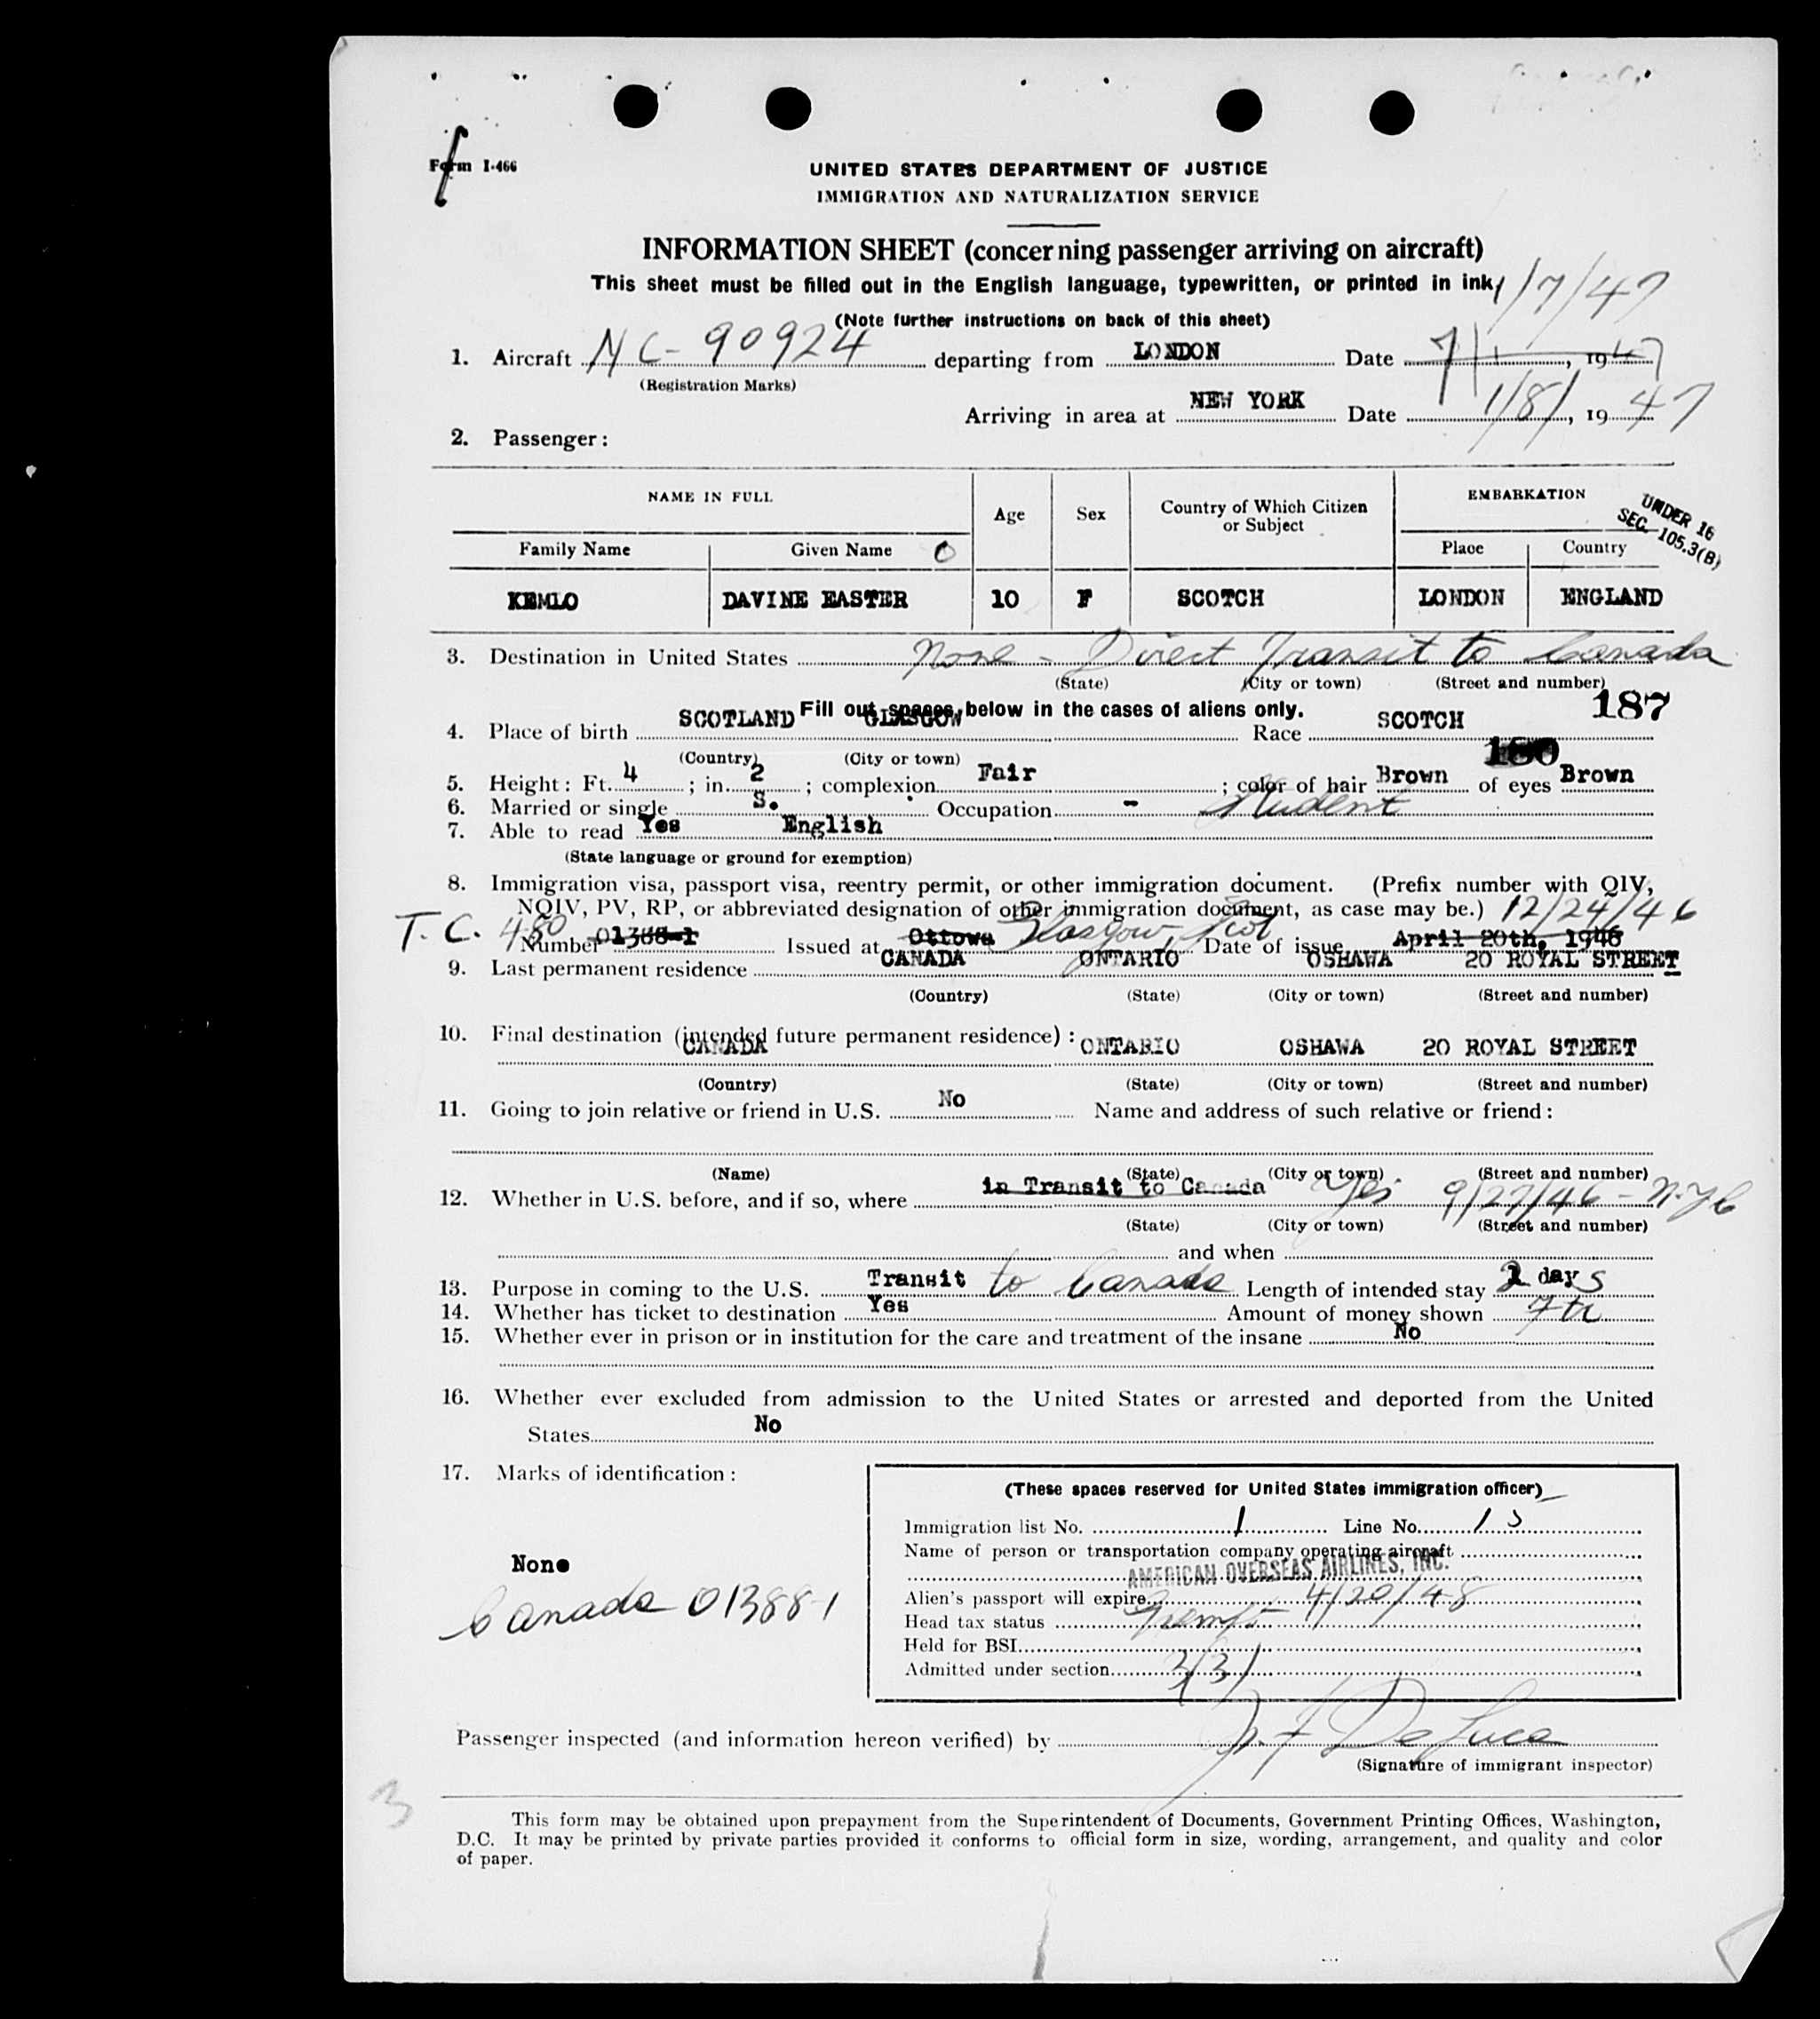 Form I-466
UNITED STATES DEPARTMENT OF JUSTICE
IMMIGRATION AND NATURALIZATION SERVICE
INFORMATION SHEET (concerning passenger arriving on aircraft)
This sheet must be filled out in the English language, typewritten, or printed in ink.
1/7/47
(Note further instructions on back of this sheet)
1. Aircraft NC-90924 departing from LONDON Date 7/1, 1947
(Registration Marks)
Arriving in area at NEW YORK Date 1/8/, 1947
2. Passenger:
NAME IN FULL Age Sex Country of Which Citizen or Subject EMBARKATION
UNDER 16
SEC. 105.3(B)
Family Name Given Name Place Country
KEMLO DAVINE EASTER 10 F SCOTCH LONDON ENGLAND
3. Destination in United States None - Direct Transit to Canada
(State) (City or town) (Street and number)
187
Fill out spaces below in the cases of aliens only.
4. Place of birth SCOTLAND GLASGOW Race SCOTCH
(Country) (City or town)
180
5. Height: Ft. 4; in. 2; complexion Fair; color of hair Brown of eyes Brown
6. Married or single S. Occupation - Student
7. Able to read Yes English
(State language or ground for exemption)
8. Immigration visa, passport visa, reentry permit, or other immigration document. (Prefix number with QIV,
NQIV, PV, RP, or abbreviated designation of other immigration document, as case may be.) 12/24/46
T.C. 480 Number 01388-1 Issued at Ottowa Glasgow, Scot Date of issue April 20th, 1946
9. Last permanent residence CANADA ONTARIO OSHAWA 20 ROYAL STREET
(Country) (State) (City or town) (Street and number)
10. Final destination (intended future permanent residence):
CANADA ONTARIO OSHAWA 20 ROYAL STREET
(Country) (State) (City or town) (Street and number)
11. Going to join relative or friend in U.S. No Name and address of such relative or friend:
(Name) (State) (City or town) (Street and number)
12. Whether in U.S. before, and if so, where in Transit to Canada Yes 9/27/46 - N.Y.C
(State) (City or town) (Street and number)
and when
13. Purpose in coming to the U.S. Transit to Canada Length of intended stay 2 days
14. Whether has ticket to destination Yes Amount of money shown
15. Whether ever in prison or in institution for the care and treatment of the insane No
16. Whether ever excluded from admission to the United States or arrested and deported from the United
States No
17. Marks of identification:
None
Canada 01388-1
(These spaces reserved for United States immigration officer)
Immigration list No. 1 Line No. 13
Name of person or transportation company operating aircraft
AMERICAN OVERSEAS AIRLINES, INC.
Alien's passport will expire 4/20/48
Head tax status Exempt
Held for BSI
Admitted under section 3(3)
Passenger inspected (and information hereon verified) by De Luca
(Signature of immigrant inspector)
3
This form may be obtained upon prepayment from the Superintendent of Documents, Government Printing Offices, Washington,
D.C. It may be printed by private parties provided it conforms to official form in size, wording, arrangement, and quality and color
of paper.